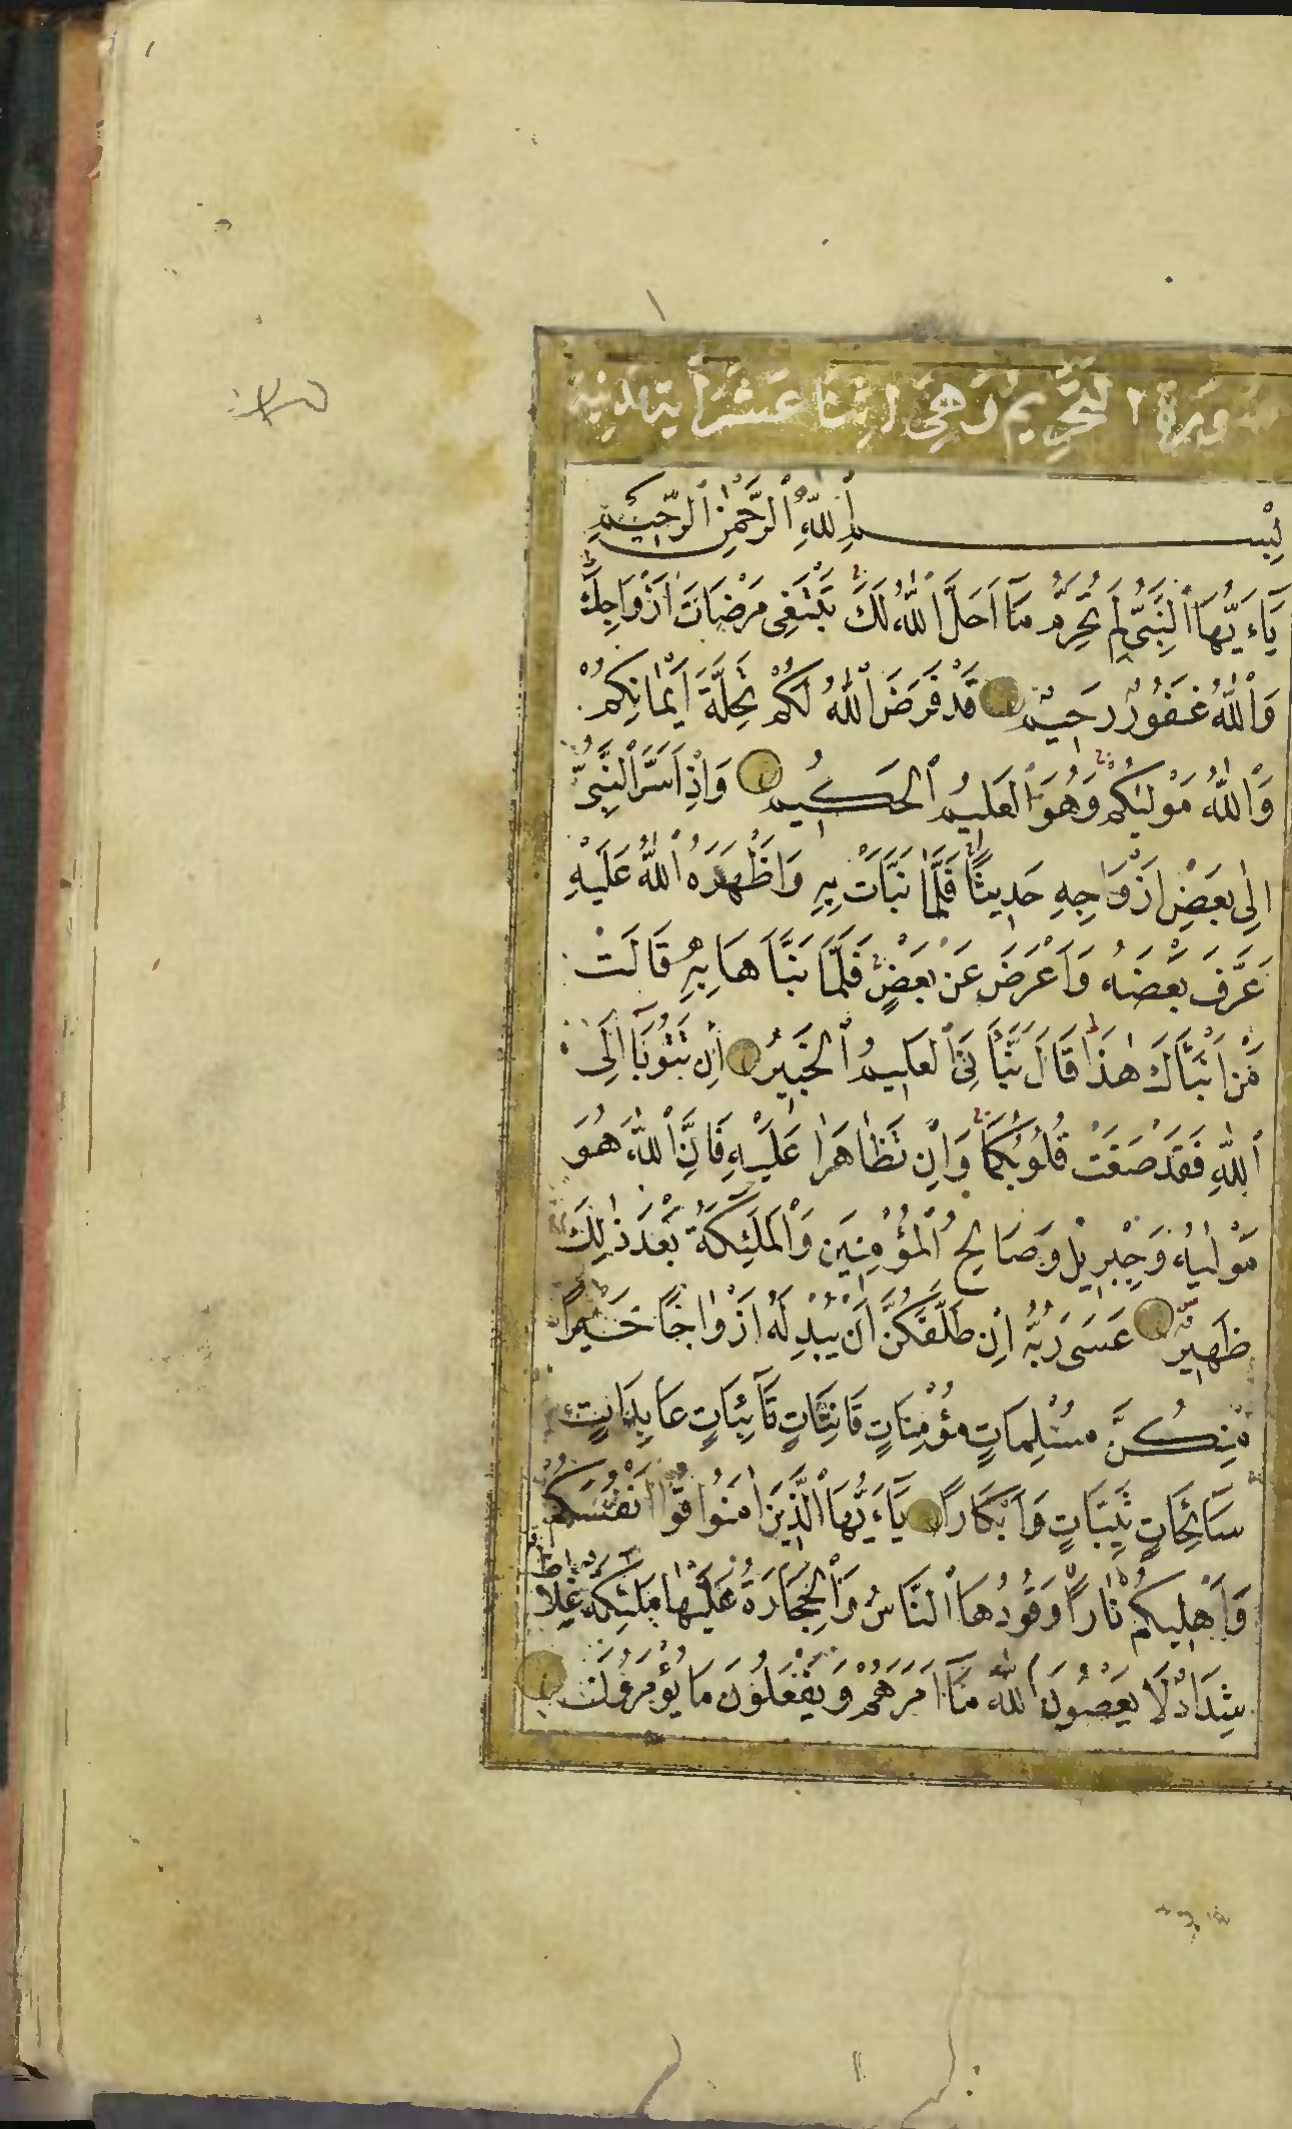 سورة التحريم وهي اثنتا عشر اية مدنية
بِسْمِ ٱللّٰهِ ٱلرَّحْمٰنِ ٱلرَّحِيمِ
يَٓاءَيُّهَا ٱلنَّبِىُّ لِمَ تُحَرِّمُ مَٓا اَحَلَّ ٱللّٰهُ لَكَ تَبْتَغِى مَرْضَاتَ اَزْوَاجِكَ
وَٱللّٰهُ غَفُورٌ رَحِيمٌ قَدْ فَرَضَ ٱللّٰهُ لَكُمْ تَحِلَّةَ اَيْمَانِكُمْ
وَٱللّٰهُ مَوْلٰيكُمْ وَهُوَ ٱلْعَلِيمُ ٱلْحَكِيمُ وَاِذْ اَسَرَّ ٱلنَّبِىُّ
اِلٰى بَعْضِ اَزْوَاجِهِ حَدِيثًا فَلَمَّا نَبَّاَتْ بِهِ وَاَظْهَرَهُ ٱللّٰهُ عَلَيْهِ
عَرَّفَ بَعْضَهُ وَاَعْرَضَ عَنْ بَعْضٍ فَلَمَّا نَبَّاَهَا بِهِ قَالَتْ
مَنْ اَنْبَاَكَ هٰذَا قَالَ نَبَّاَنِىَ ٱلْعَلِيمُ ٱلْخَبِيرُ اِنْ تَتُوبَٓا اِلَى
ٱللّٰهِ فَقَدْ صَغَتْ قُلُوبُكُمَا وَاِنْ تَظَاهَرَا عَلَيْهِ فَاِنَّ ٱللّٰهَ هُوَ
مَوْلٰيهُ وَجِبْرِيلُ وَصَالِحُ ٱلْمُؤْمِنِينَ وَٱلْمَلٰٓئِكَةُ بَعْدَ ذٰلِكَ
ظَهِيرٌ عَسٰى رَبُّهُ اِنْ طَلَّقَكُنَّ اَنْ يُبْدِلَهُ اَزْوَاجًا خَيْرًا
مِنْكُنَّ مُسْلِمَاتٍ مُؤْمِنَاتٍ قَانِتَاتٍ تَٓائِبَاتٍ عَابِدَاتٍ
سَٓائِحَاتٍ ثَيِّبَاتٍ وَاَبْكَارًا يَٓاءَيُّهَا ٱلَّذِينَ اٰمَنُوا قُٓوا اَنْفُسَكُمْ
وَاَهْلِيكُمْ نَارًا وَقُودُهَا ٱلنَّاسُ وَٱلْحِجَارَةُ عَلَيْهَا مَلٰٓئِكَةٌ غِلَاظٌ
شِدَادٌ لَا يَعْصُونَ ٱللّٰهَ مَٓا اَمَرَهُمْ وَيَفْعَلُونَ مَا يُؤْمَرُونَ